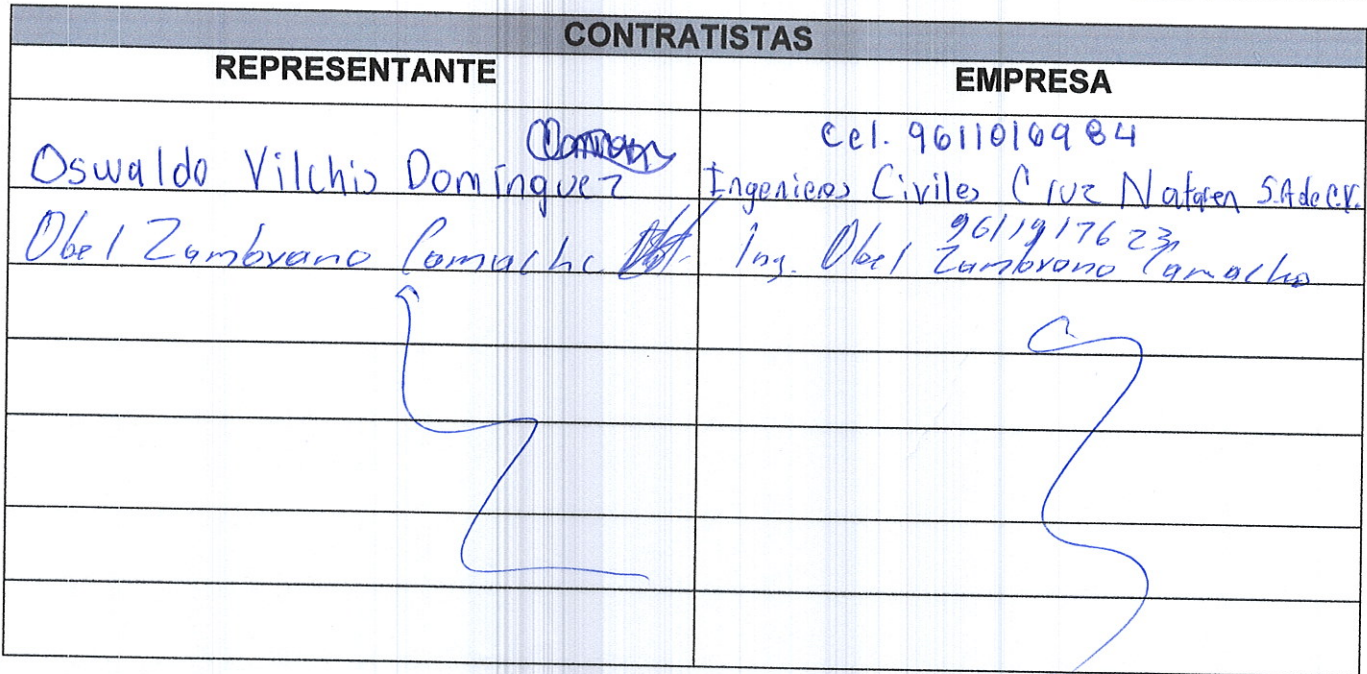 CONTRATISTAS
REPRESENTANTE
EMPRESA
Oswaldo Vilchis Domínguez
Cel. 9611016984
Ingenieros Civiles Cruz Nataren S.A de C.V.
Obel Zambrano Camacho
9611917623
Ing. Obel Zambrano Camacho